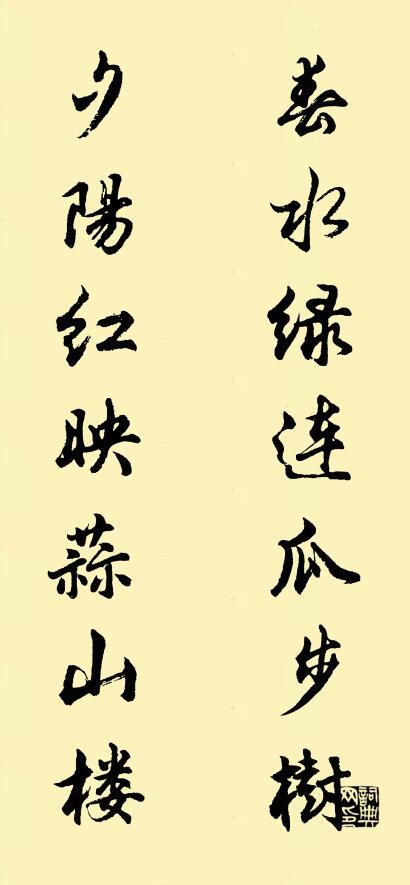 春水绿连瓜步樹
夕陽红映蒜山楼
詞典网印